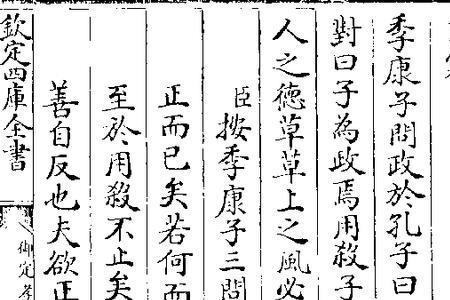 季康子問政於孔子曰
對曰子為政焉用殺子
人之德草草上之風必
臣按季康子三問
正而已矣若何而
至於用殺不止矣
善自反也夫欲正
欽定四庫全書
御定孝